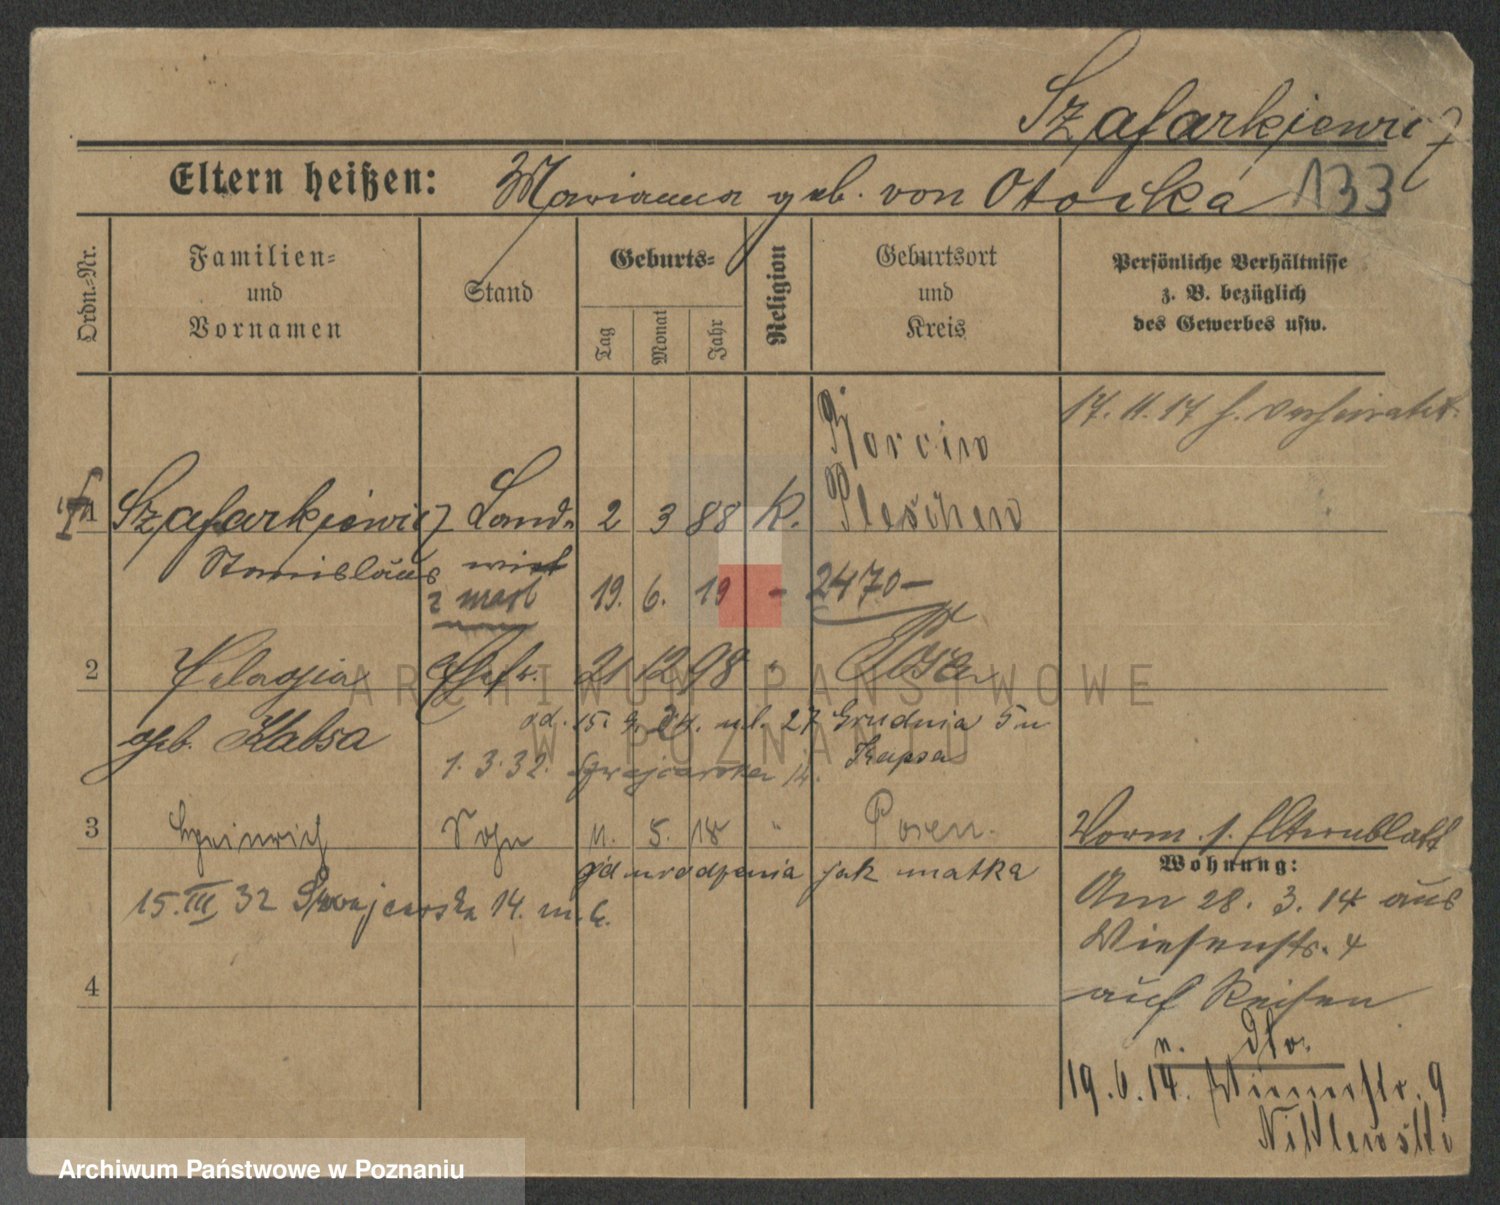 Szafarkiewicz
Eltern heißen: Marianna geb. von Otocka 133
Ordn.-Nr.
Familien-
und
Vornamen
Stand
Geburts-
Tag
Monat
Jahr
Religion
Geburtsort
und
Kreis
Persönliche Verhältnisse
z. B. bezüglich
des Gewerbes usw.
17. 11. 17 h. verheiratet.
1 Szafarkiewicz Land- 2 3 88 K.
Pleschen
Stanislaus wirt
19. 6. 19 - 2470-
2 Pelagia Ehefr. 21 12 98 "
geb. Kabsa
od. 15. 9. 24. ul. 27 Grudnia 5 u
Kapsa
1. 3. 32. Szwajcarska 14.
3 Heinrich Sohn 11. 5. 18 " Posen.
od urodzenia jak matka
15. III 32 Szwajcarska 14. m. 6.
4
Vorm. s. Elternblatt
Wohnung:
Am 28. 3. 14 aus
Wiesenstr. 4
auf Reisen
19. 6. 14. 9
ARCHIWUM PAŃSTWOWE
W POZNANIU
Archiwum Państwowe w Poznaniu